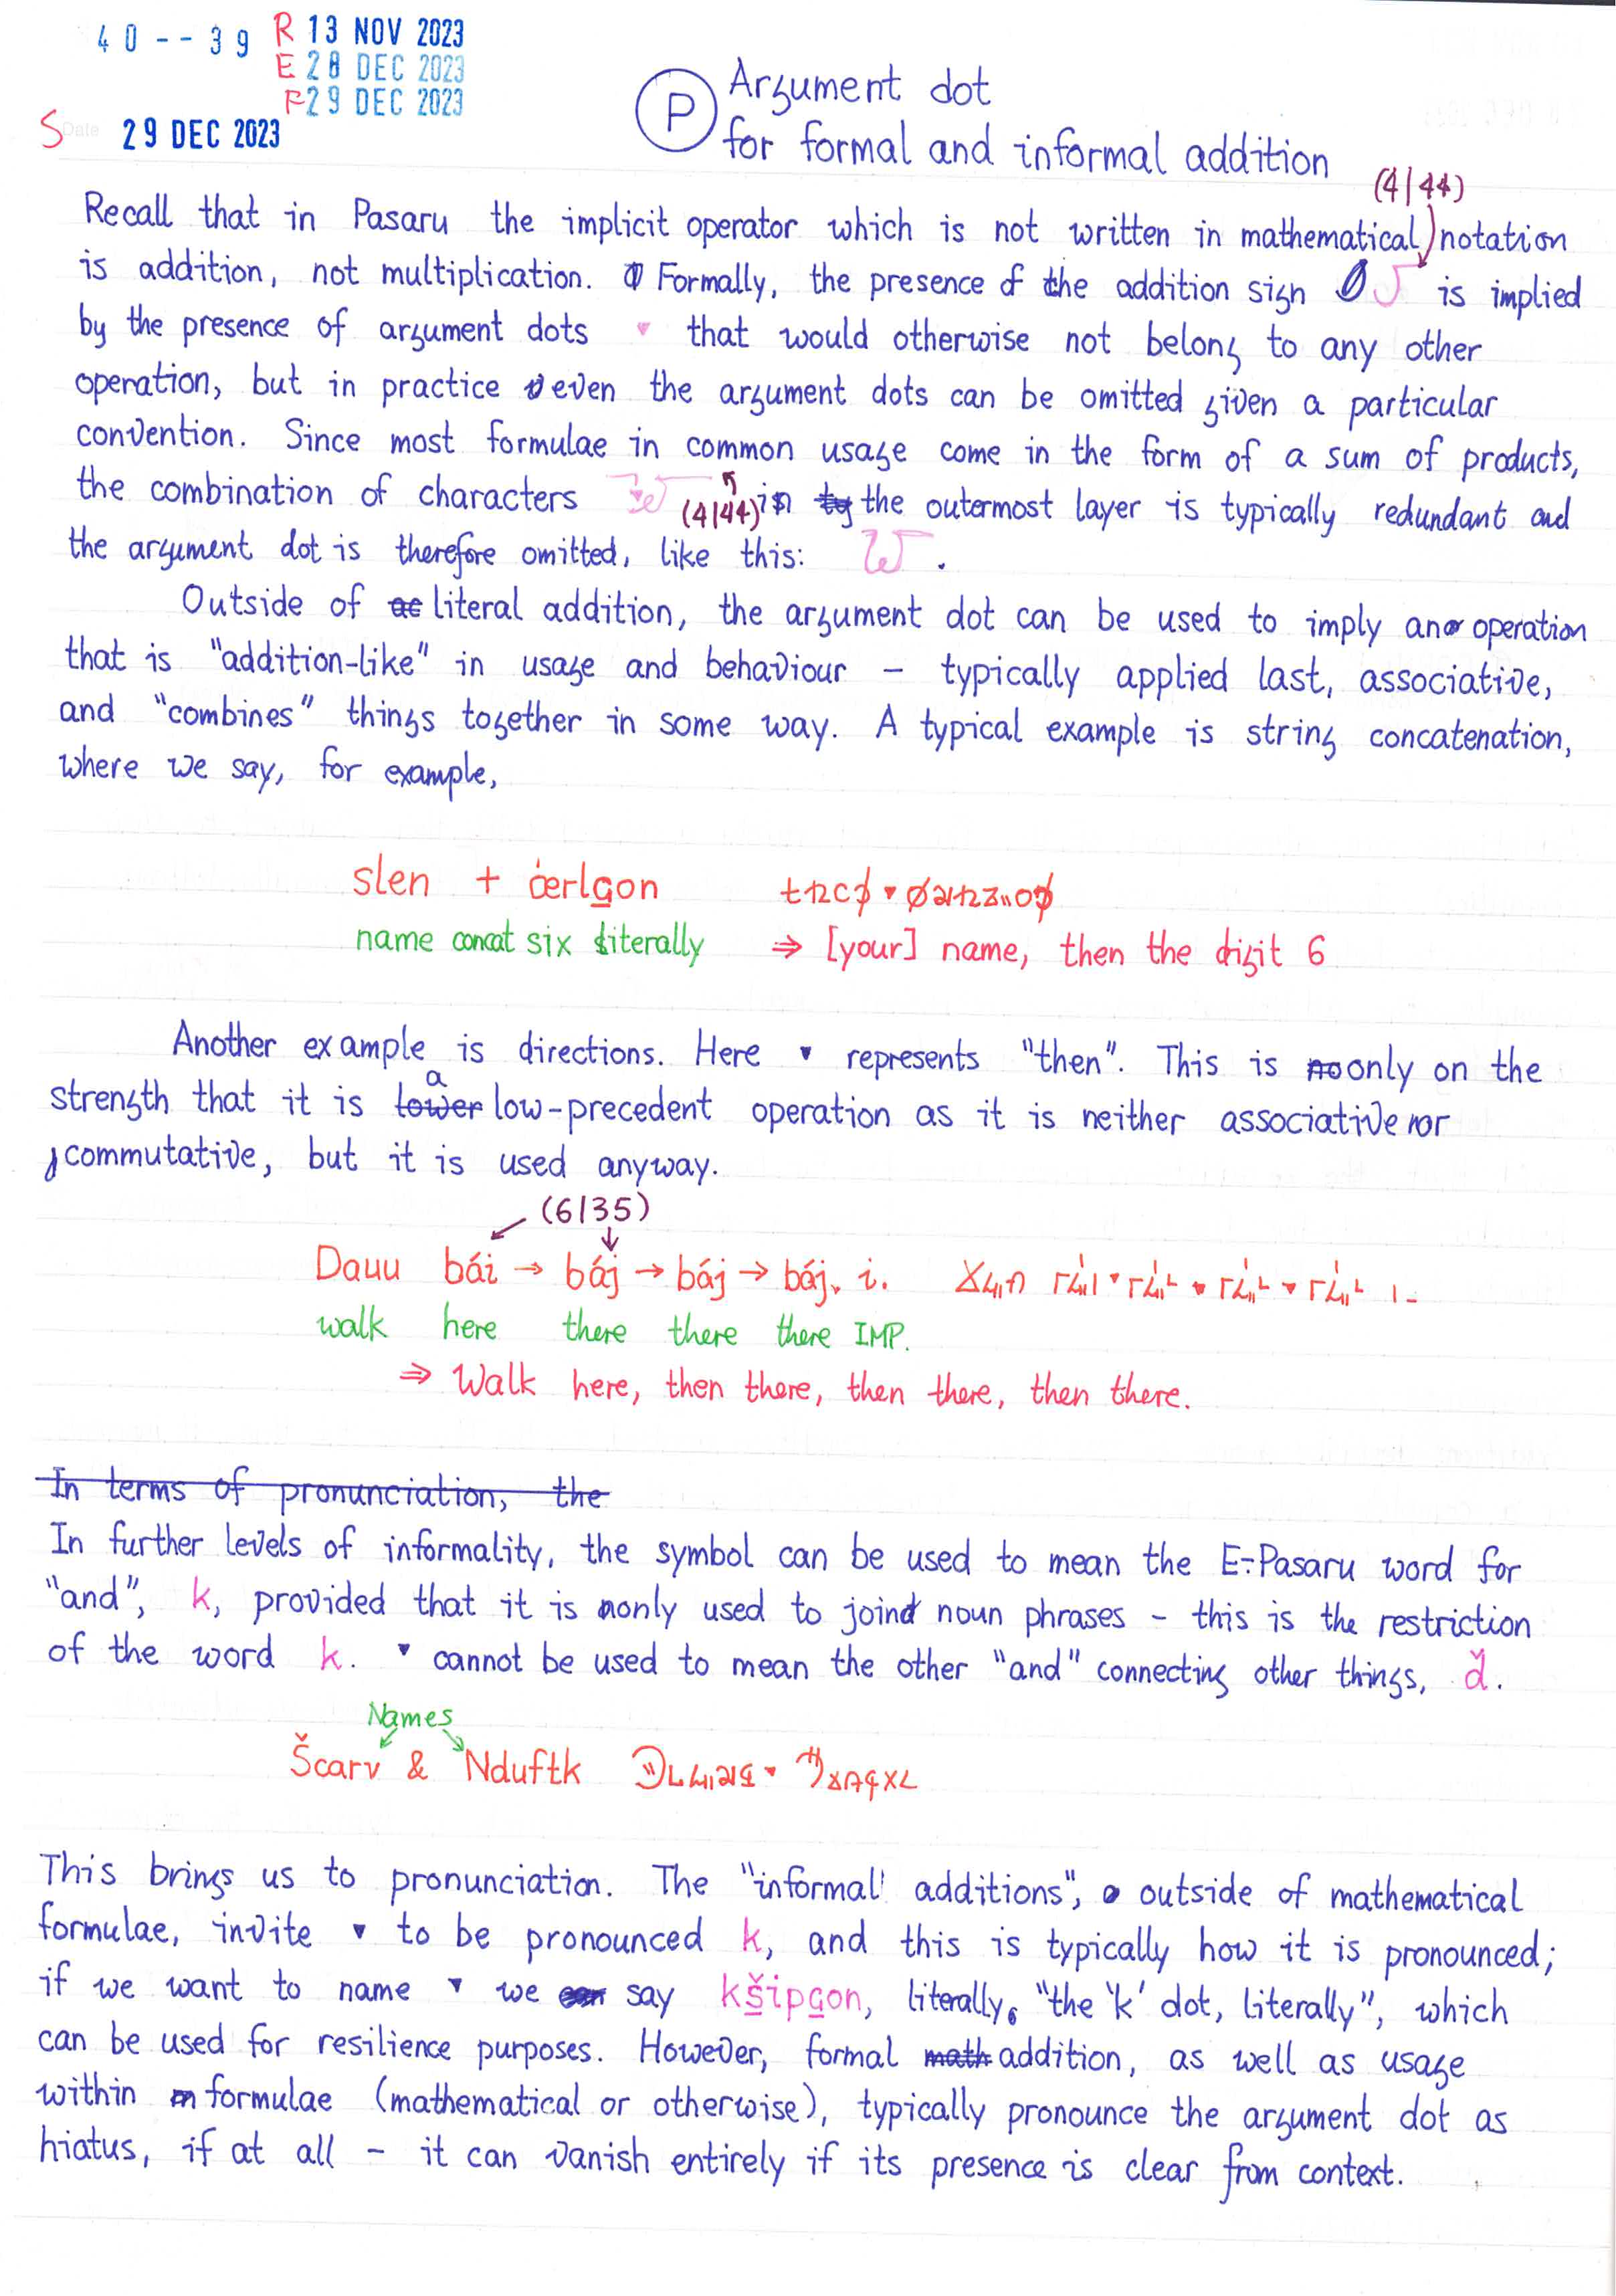 40--39 R 13 NOV 2023
E 28 DEC 2023
F 29 DEC 2023
S Date 29 DEC 2023
P Argument dot
for formal and informal addition
(4|44)
Recall that in Pasaru the implicit operator which is not written in mathematical notation
is addition, not multiplication. Formally, the presence of the addition sign is implied
by the presence of argument dots ▾ that would otherwise not belong to any other
operation, but in practice even the argument dots can be omitted given a particular
convention. Since most formulae in common usage come in the form of a sum of products,
the combination of characters (4|44) in the outermost layer is typically redundant and
the argument dot is therefore omitted, like this: .
Outside of literal addition, the argument dot can be used to imply an operation
that is "addition-like" in usage and behaviour – typically applied last, associative,
and "combines" things together in some way. A typical example is string concatenation,
where we say, for example,
slen + ċerlgon
name concat six literally ⇒ [your] name, then the digit 6
Another example is directions. Here ▾ represents "then". This is only on the
strength that it is a low-precedent operation as it is neither associative nor
commutative, but it is used anyway.
(6|35)
Dauu bái → báj → báj → báj. i.
walk here there there there IMP.
⇒ Walk here, then there, then there, then there.
In terms of pronunciation, the
In further levels of informality, the symbol can be used to mean the E-Pasaru word for
"and", k, provided that it is only used to join noun phrases – this is the restriction
of the word k. ▾ cannot be used to mean the other "and" connecting other things, ď.
Names
Šcarv & Nduftk
This brings us to pronunciation. The "informal additions", outside of mathematical
formulae, invite ▾ to be pronounced k, and this is typically how it is pronounced;
if we want to name ▾ we say kšipgon, literally, "the 'k' dot, literally", which
can be used for resilience purposes. However, formal math addition, as well as usage
within formulae (mathematical or otherwise), typically pronounce the argument dot as
hiatus, if at all – it can vanish entirely if its presence is clear from context.